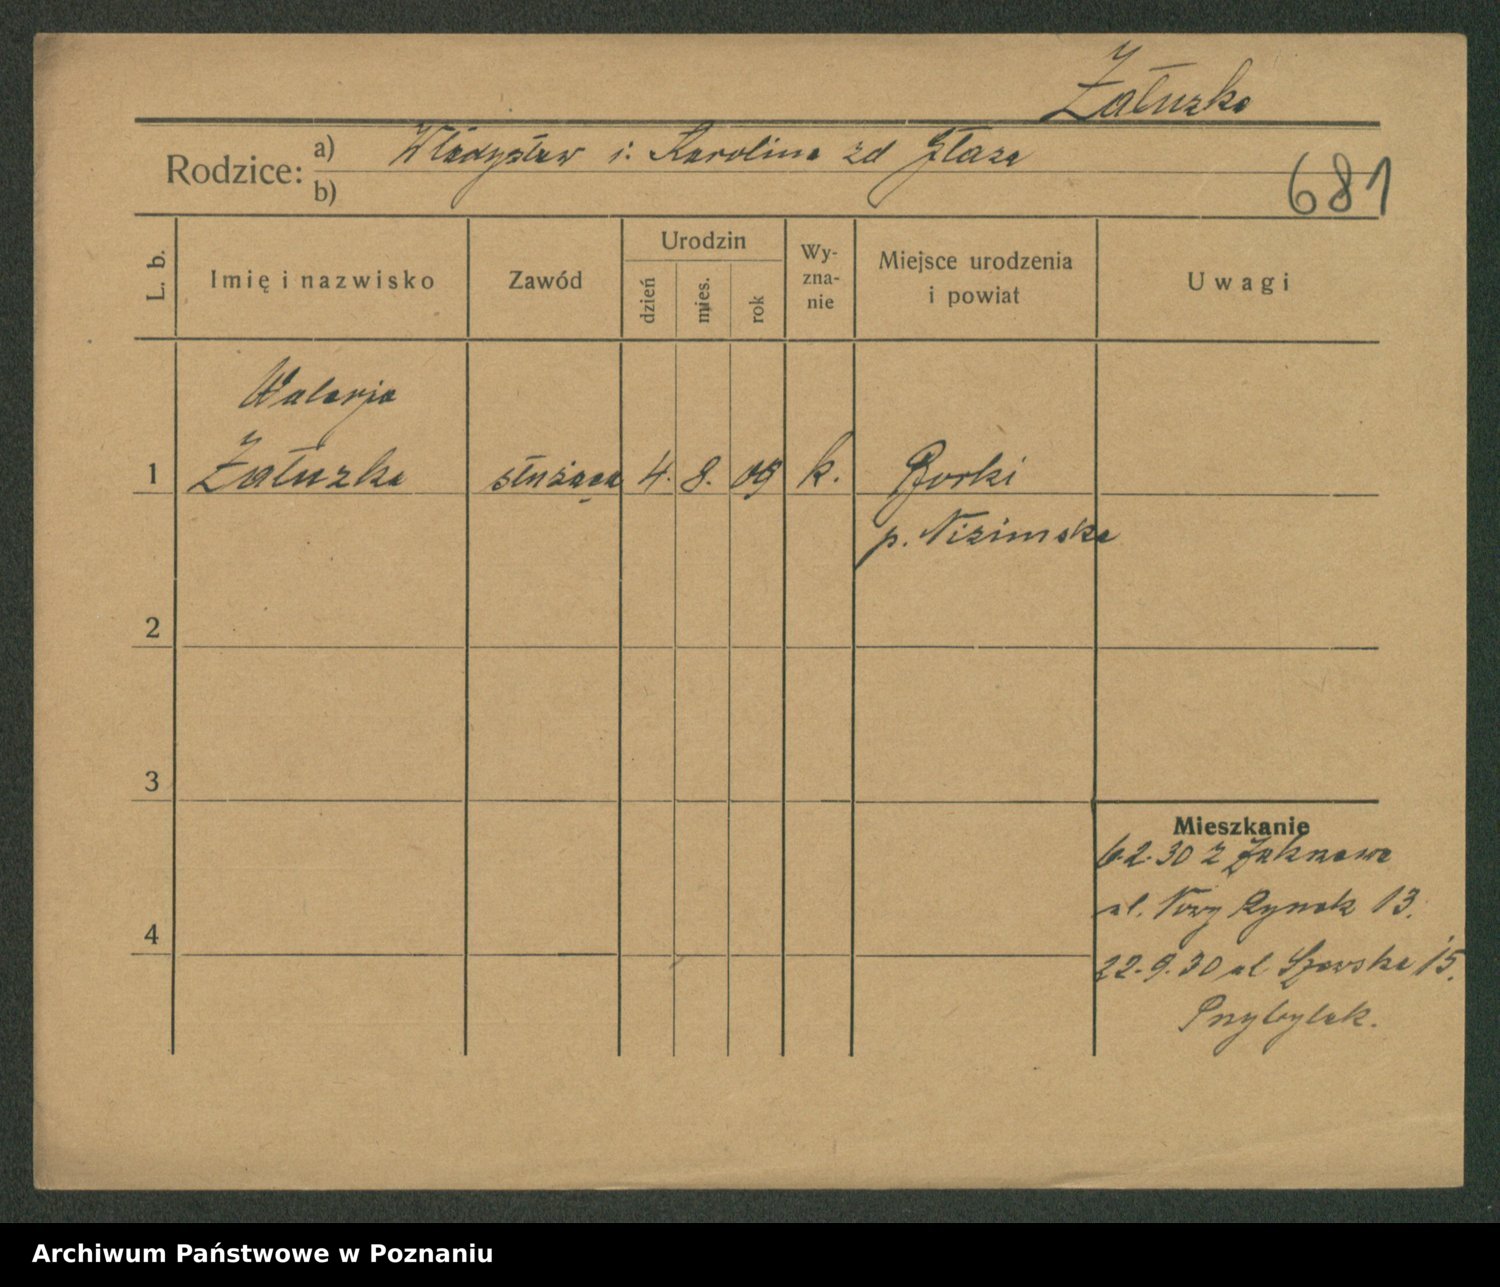 Załuzka
Rodzice: a) Władysław i. Karolina zd Głaza
b)
681
L. b.
Imię i nazwisko
Zawód
Urodzin
dzień
mies.
rok
Wy-
zna-
nie
Miejsce urodzenia
i powiat
Uwagi
Walerja
1 Załuzka służąca 4. 8. 09 k. Borki
p. Nizimska
2
3
Mieszkanie
6.2.30 z
ul. Nowy Rynek 13.
4
22.9.30 ul 15.
Przybylak.
Archiwum Państwowe w Poznaniu